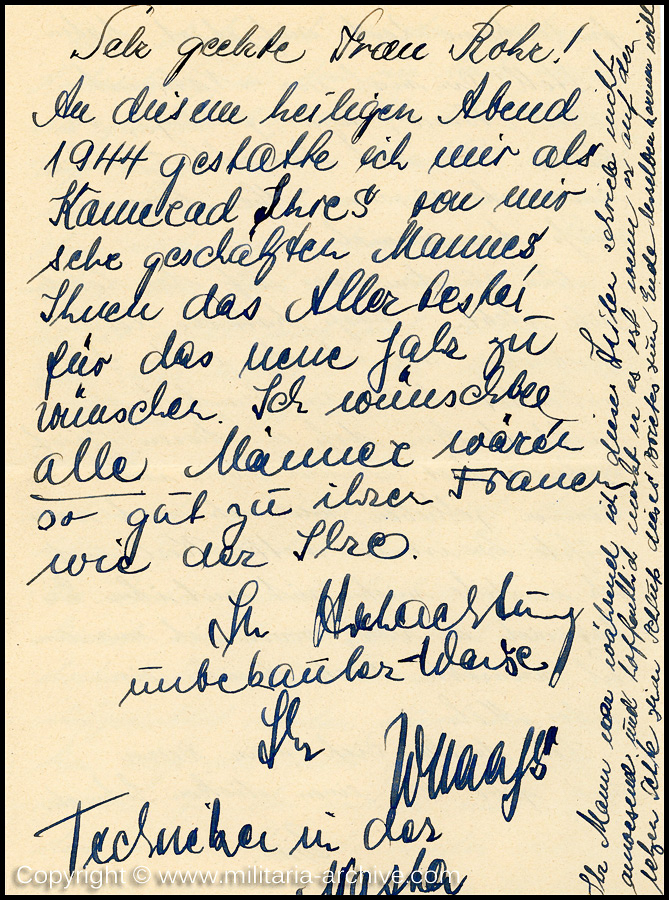 Sehr geehrte Frau Rohr!
An diesem heiligen Abend
1944 gestatte ich mir als
Kamerad Ihres von mir
sehr geschätzten Mannes,
Ihnen das Allerbeste
für das neue Jahr zu
wünschen. Ich wünschte
alle Männer wären
so gut zu ihren Frauen
wie der Ihre.
In Hochachtung
unbekannter-Weise
Ihr
Techniker in der
Ihr Mann war während ich diese Zeilen schreibe nicht
anwesend und hoffentlich merkt er es erst wenn er auf der
letzten Seite zum Schluß dieses Briefes zum Ende desselben kommen will
Copyright © - www.militaria-archive.com